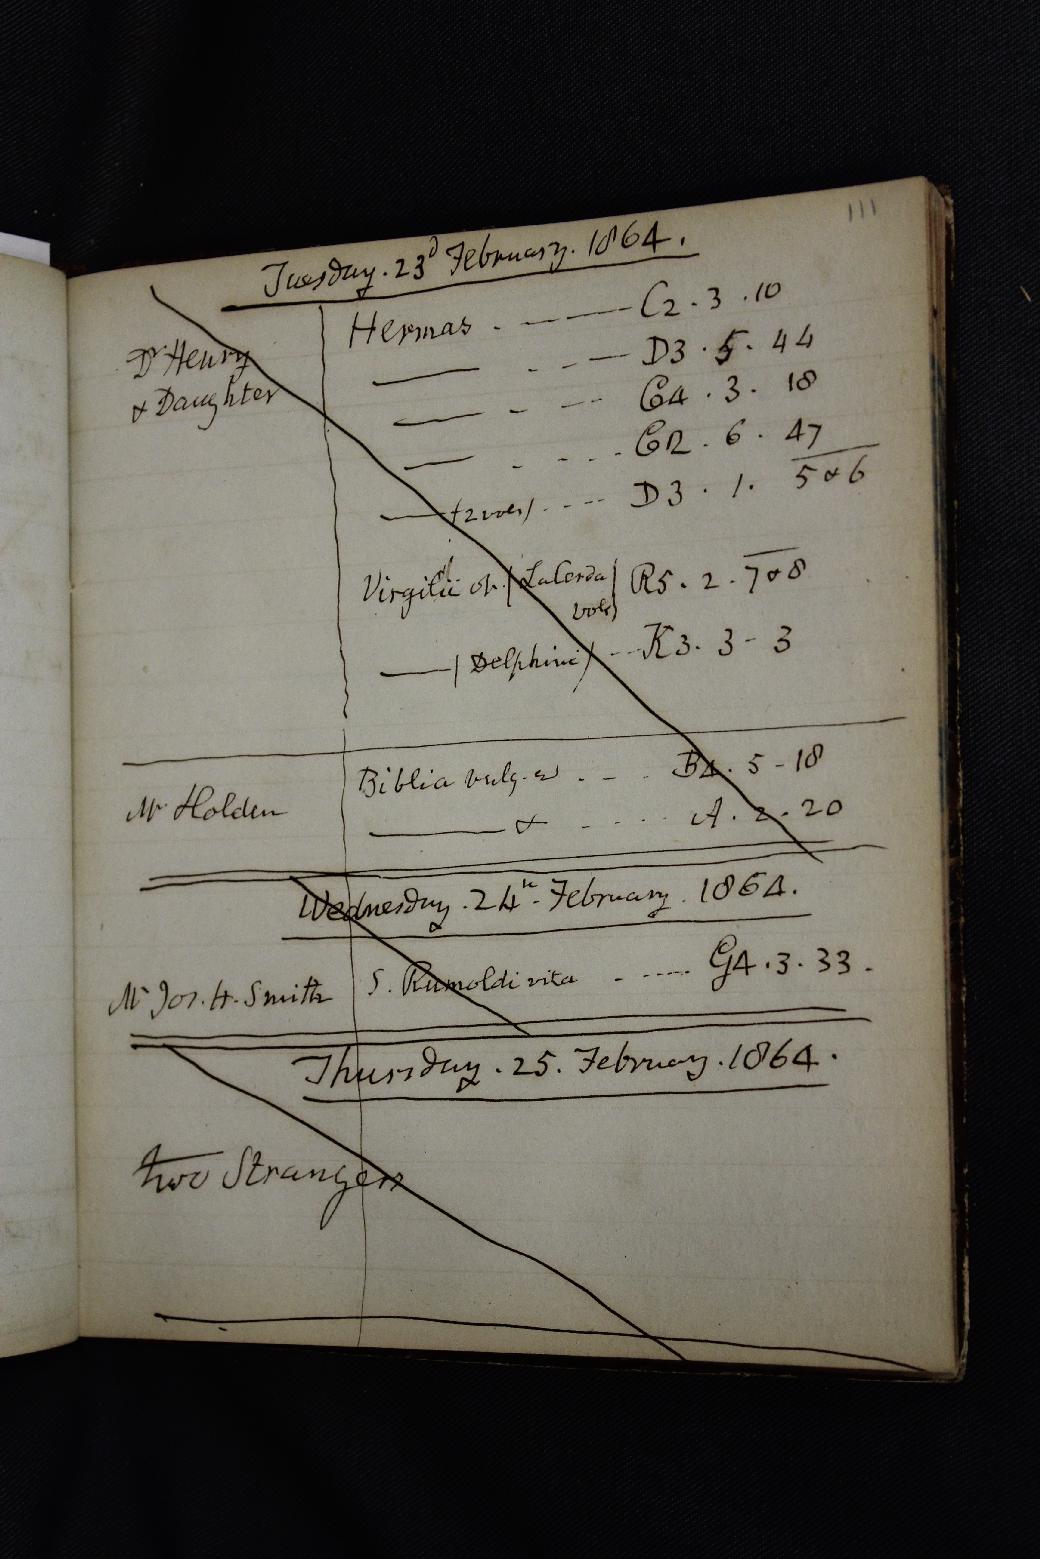 111
Tuesday. 23d February. 1864.
Dr Henry
& Daughter
Hermas . — C2 . 3 . 10
— . . — D3 . 5 . 44
— . . — C4 . 3 . 18
— . . . . C2 . 6 . 47
— (2 vols) . . . D3 . 1 . 5 & 6
Virgilii op. (LaCerda R5 . 2 . 7 & 8
vols)
— (Delphini) . . . K3 . 3 - 3
Mr Holden
Biblia vulg. . . . B4 . 5 - 18
— & . . . . A . 2 . 20
Wednesday . 24th February . 1864.
Mr Jos. H. Smith S. Rumoldi vita . . . . G4 . 3 . 33 .
Thursday . 25 . February . 1864 .
two Strangers